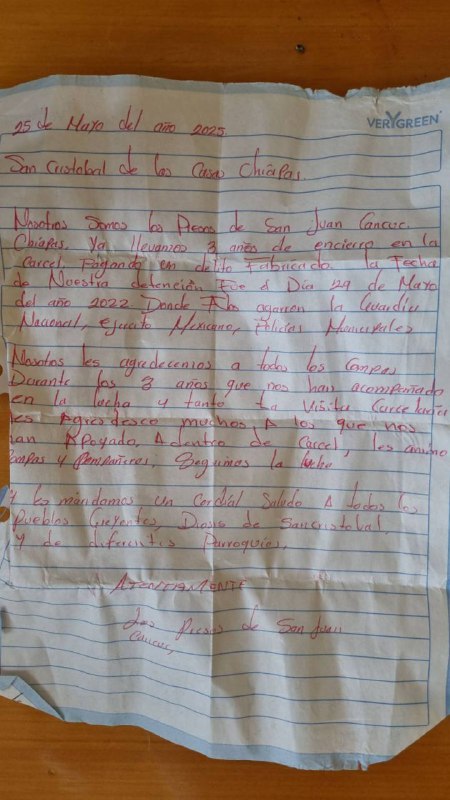 VERYGREEN
25 de Mayo del año 2025.
San Cristobal de las Casas Chiapas.
Nosotros Somos los Presos de San Juan Cancuc.
Chiapas. Ya llevamos 3 años de encierro en la
Carcel. Pagando un delito Fabricado. la Fecha
de Nuestra detención Fue el Dia 29 de Mayo
del año 2022. Donde Nos agarron la Guardia
Nacional, ejercito Mexicano, Policias Municipales
Nosotros les agradecemos a todos los Compas
Durante los 3 años que nos han acompañado
en la lucha y tanto la Visita Carcelaria
les Agradesco muchos, A los que nos
han Apoyado, Adentro de Carcel, les animo
Compas y Compañeros, Seguimos la lucha
Y les mandamos un Cordial Saludo A todos los
Pueblos Creyentes, Diosis de Sancristobal.
Y de diferentes Parroquias,
ATENTAMENTE
Los Presos de San Juan
Cancuc,